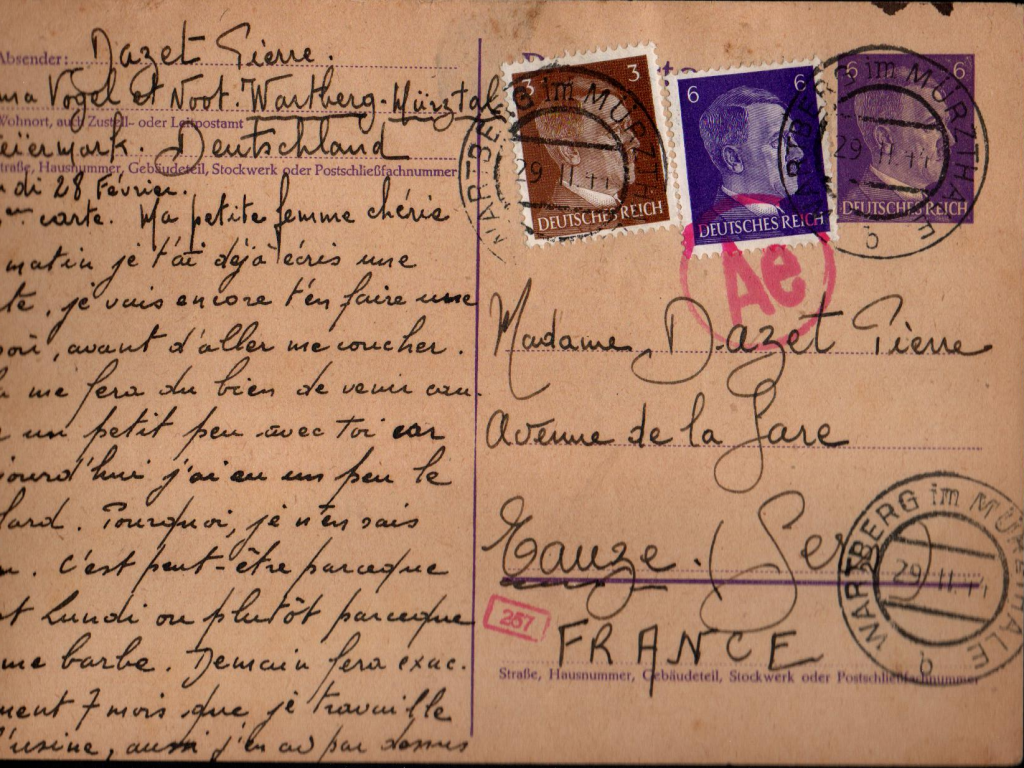 Absender: Dazet Pierre.
ma Vogel et Noot. Wartberg-Mürztal
Wohnort, auch Zustell- oder Leitpostamt
eiermark. Deutschland
raße, Hausnummer, Gebäudeteil, Stockwerk oder Postschließfachnummer
di 28 Février.
carte. Ma petite femme chérie
matin je t'ai déjà écris une
te, je vais encore t'en faire une
oir, avant d'aller me coucher.
a me fera du bien de venir cau-
r un petit peu avec toi car
jourd'hui j'ai eu un peu le
fard. Pourquoi, je n'en sais
n. C'est peut-être parceque
st Lundi ou plutôt parceque
me barbe. Demain fera exac-
ment 7 mois que je travaille
l'usine, aussi j'en ai par dessus
3 3
DEUTSCHES REICH
6 6
DEUTSCHES REICH
6 6
DEUTSCHES REICH
WARTBERG im MÜRZTHALE
29 11.44
b
WARTBERG im MÜRZTHALE
29 11.44
b
Ae
Madame Dazet Pierre
Avenue de la Gare
Eauze. (Gers)
267
FRANCE
WARTBERG im MÜRZTHALE
29 11.44
b
Straße, Hausnummer, Gebäudeteil, Stockwerk oder Postschließfachnummer